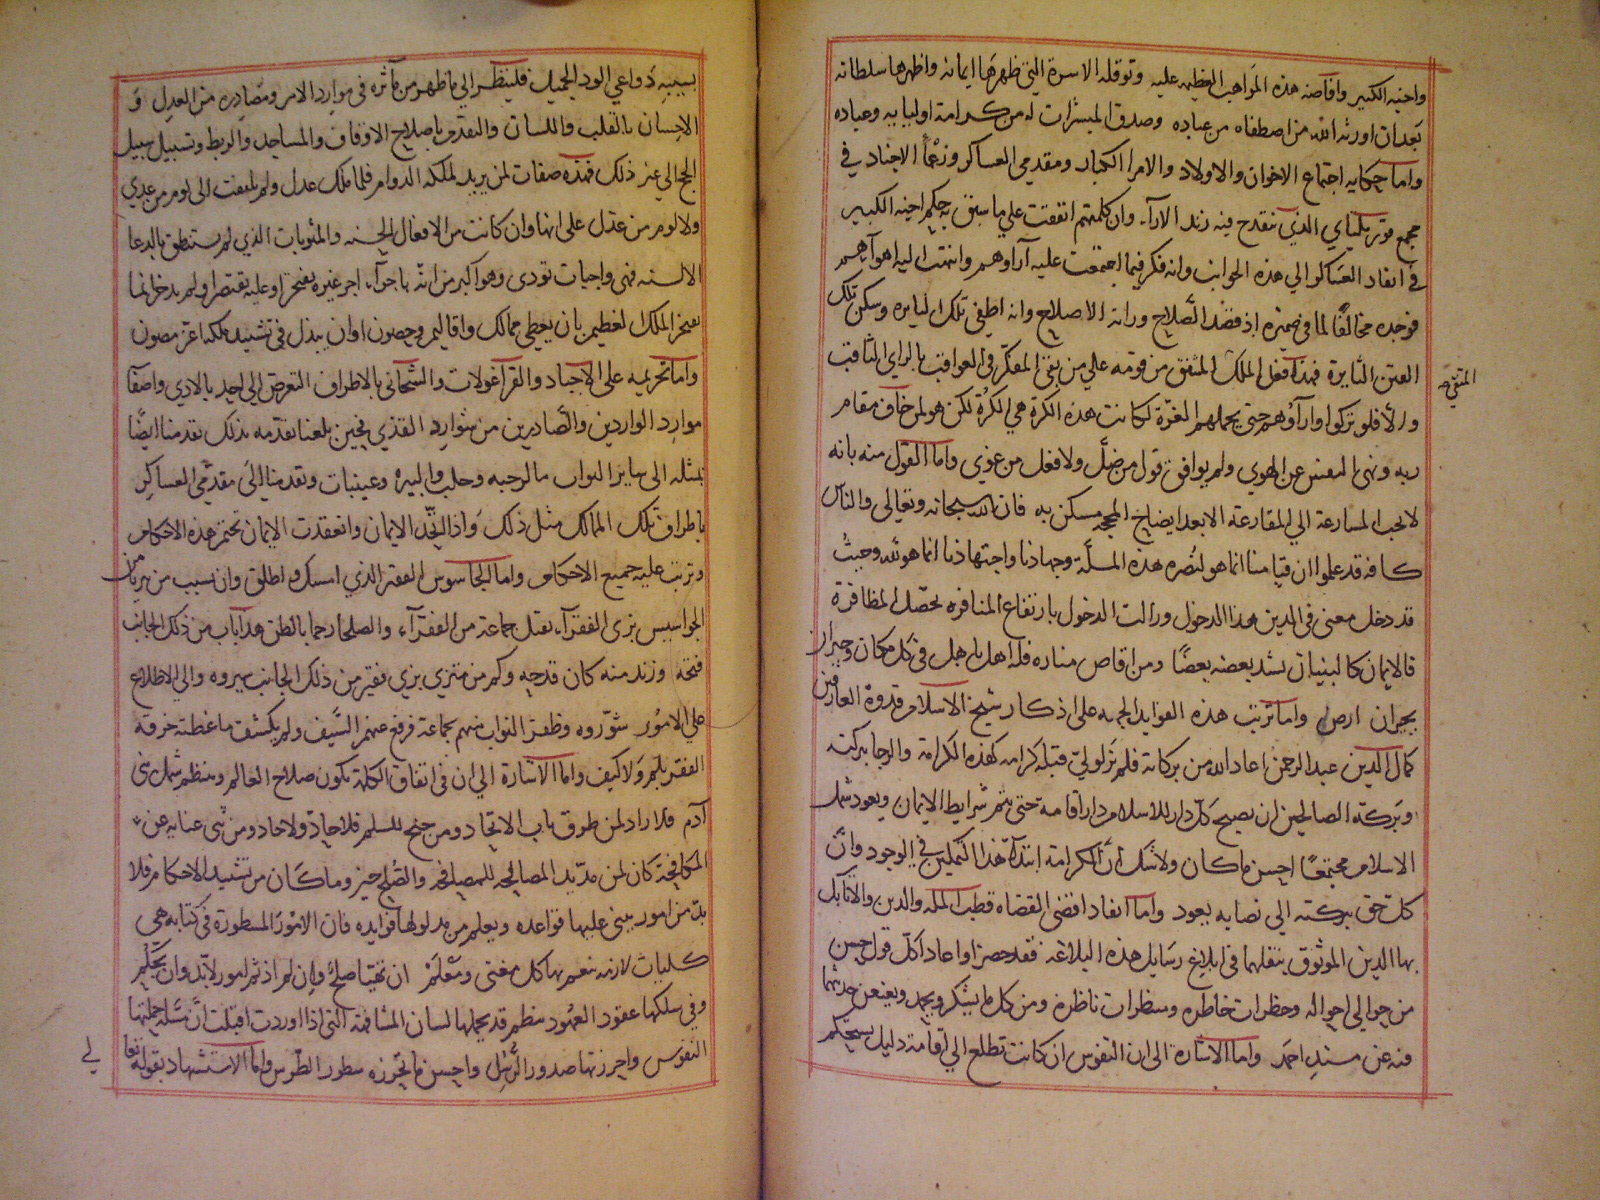 واجنبه الكبير وافاضه هذه المواهب العظيمه عليه وتوقله الاسرة التي ظهرها ايمانه واظهرها سلطانه
بعد ان اورثه الله من اصطفاه من عباده وصدق المبشرات له من كرامة اوليا به وعباده
واما حكايه اجتماع الاخوان والاولاد والامرا الكبار ومقدمي العساكر وزعما الاجناد في
مجمع قوريلتاي الذي تنقدح فيه زند الارآء وان كلمتهم اتفقت علي ما سبق به حكم اخيه الكبير
في انفاد العساكر الي هذه الجوانب وانه فكر فيما اجتمعت عليه آراوهم وانتهت اليه اهوآهم
فوجده مخالفا لما في ضميره اذ قصد الصلاح ورايه الاصلاح وانه اطفى تلك النايره وسكن تلك
الفتن الثايرة فهذا فعل الملك المتقي من قومه علي من بقى المفكر في العواقب بالراي الثاقب
المتقي صح
والا فلو تركوا وارآؤهم حتى تحملهم الغرة لكانت هذه الكرة هي الكرة لكن هو لمن خاف مقام
ربه ونهى النفس عن الهوي ولم يوافق قول من ضل ولا فعل من غوي واما القول منه بانه
لا يحب المسارعة الي المقارعة الا بعد ايضاح المحجه فان الله سبحانه وتعالى والناس
كافة قد علموا ان قيامنا انما هو لنصره هذه الملة وجهادنا واجتهادنا انما هو لله وحيث
قد دخل معنى في الدين هذا الدخول وزالت الدخول بارتفاع المنافره تحصل المظافرة
فالايمان كالبنيان يشد بعضه بعضا ومن اقام مناره فله اهل باهل في كل مكان وجيران
بجيران ارض واما ترتب هذه الفوايد الجمه على اذكار شيخ الاسلام قدوة العارفين
كمال الدين عبد الرحمن اعاد الله من بركاته فلم تر لولي قبله كرامه كهذه الكرامة والرجا ببركته
وبركة الصالحين ان يصبح كل دار للاسلام دار اقامة حتى يتم شرايط الايمان ويعود شمل
الاسلام مجتمعا احسن ما كان ولا شك ان الكرامة ابتدآ هذا التمكين في الوجود وان
كل حق ببركته الي نصابه يعود واما انفاد اقضى القضاه قطب الملة والدين والاتابك
بها الدين الموثوق بنقلهما في ابلاغ رسايل هذه البلاغة فقد حضرا واعادا كل قول حسن
من حوالي احواله وخطرات خاطره ونظرات ناظره ومن كل ما يشكر ويحمد ويعنعن حديثهما
فيه عن مسند احمد واما الاشارة الى ان النفوس ان كانت تطلع الي اقامة دليل يستحكم
بسببه دواعي الود الجميل فلينظر الي ما ظهر من مآثره في موارد الامر ومصادره من العدل و
الاحسان بالقلب واللسان والتقدم باصلاح الاوقاف والمساجد والربط وتسبيل سبيل
الحج الي غير ذلك فهذه صفات لمن يريد لملكه الدوام فلما ملك عدل ولم يلتفت الى لوم من عدي
ولا لوم من عذل على انها وان كانت من الافعال الحسنه والمثوبات الذي لم تستنطق بالدعا
الالسنه فهي واجبات تودى وهو اكبر من انه باجرآء اجر غيره يفتخر او عليه يقتصر او لم يدخر انما
يفتخر الملك العظيم بان يعطي ممالك واقاليم وحصون او ان يبذل في تشييد ملكه اعز مصون
واما تحريمه على الاجناد والقراغولات والشحاني بالاطراف التعرض الي احد بالاذي واصفا
موارد الواردين والصادرين من شوارد القذي فحين بلغنا تقدمه بذلك تقدمنا ايضا
بمثله الى ساير النواب بالرحبه وحلب والبيره وعينتاب وتقدمنا الى مقدمي العساكر
باطراف تلك الممالك مثل ذلك واذا اتحد الايمان وانعقدت الايمان تحتم هذه الاحكام
وترتب عليه جميع الاحكام واما الجاسوس الفقير الذي امسك واطلق وان بسبب من يريا من
الجواسيس بزي الفقرآء يقتل جماعة من الفقرآء والصلحا رجما بالظن هذا باب من ذلك الجانب
فتحه وزند منه كان قدحه وكم من متزي بزي فقير من ذلك الجانب سيروه والي الاطلاع
علي الامور شوروه وظفر النواب منهم بجماعة فرفع عنهم السيف ولم يكشف ما غطته خرقة
الفقر بلم ولا كيف واما الاشارة الي ان في اتفاق الكلمة تكون صلاح العالم وينتظم شمل بني
آدم فلا راد لمن طرق باب الاتحاد ومن جنح للسلم فلا حاد ولا حاد ومن ثنى عنانه عن
المكافحة كان لمن مد يد المصالحه للمصافحه والصلح خير وما كان من تشييد الاحكام فلا
بد من امور يبنى عليها قواعده ويعلم من مدلولها فوايده فان الامور المسطورة في كتابه هي
كليات لازمه ينعم بها كل معنى ومعلم ان تهيا صلح وان لم اذ ثم امور لا بد وان تحكم
وفي سلكها عقود العهود ينتظم قد يحملها لسان المشافهة التي اذا اوردت اقبلت ان شا الله جملتها
النفوس واحرزتها صدور الرسل واحسن ما تحرزه سطور الطرس واما الاستشهاد بقوله تعا
لي